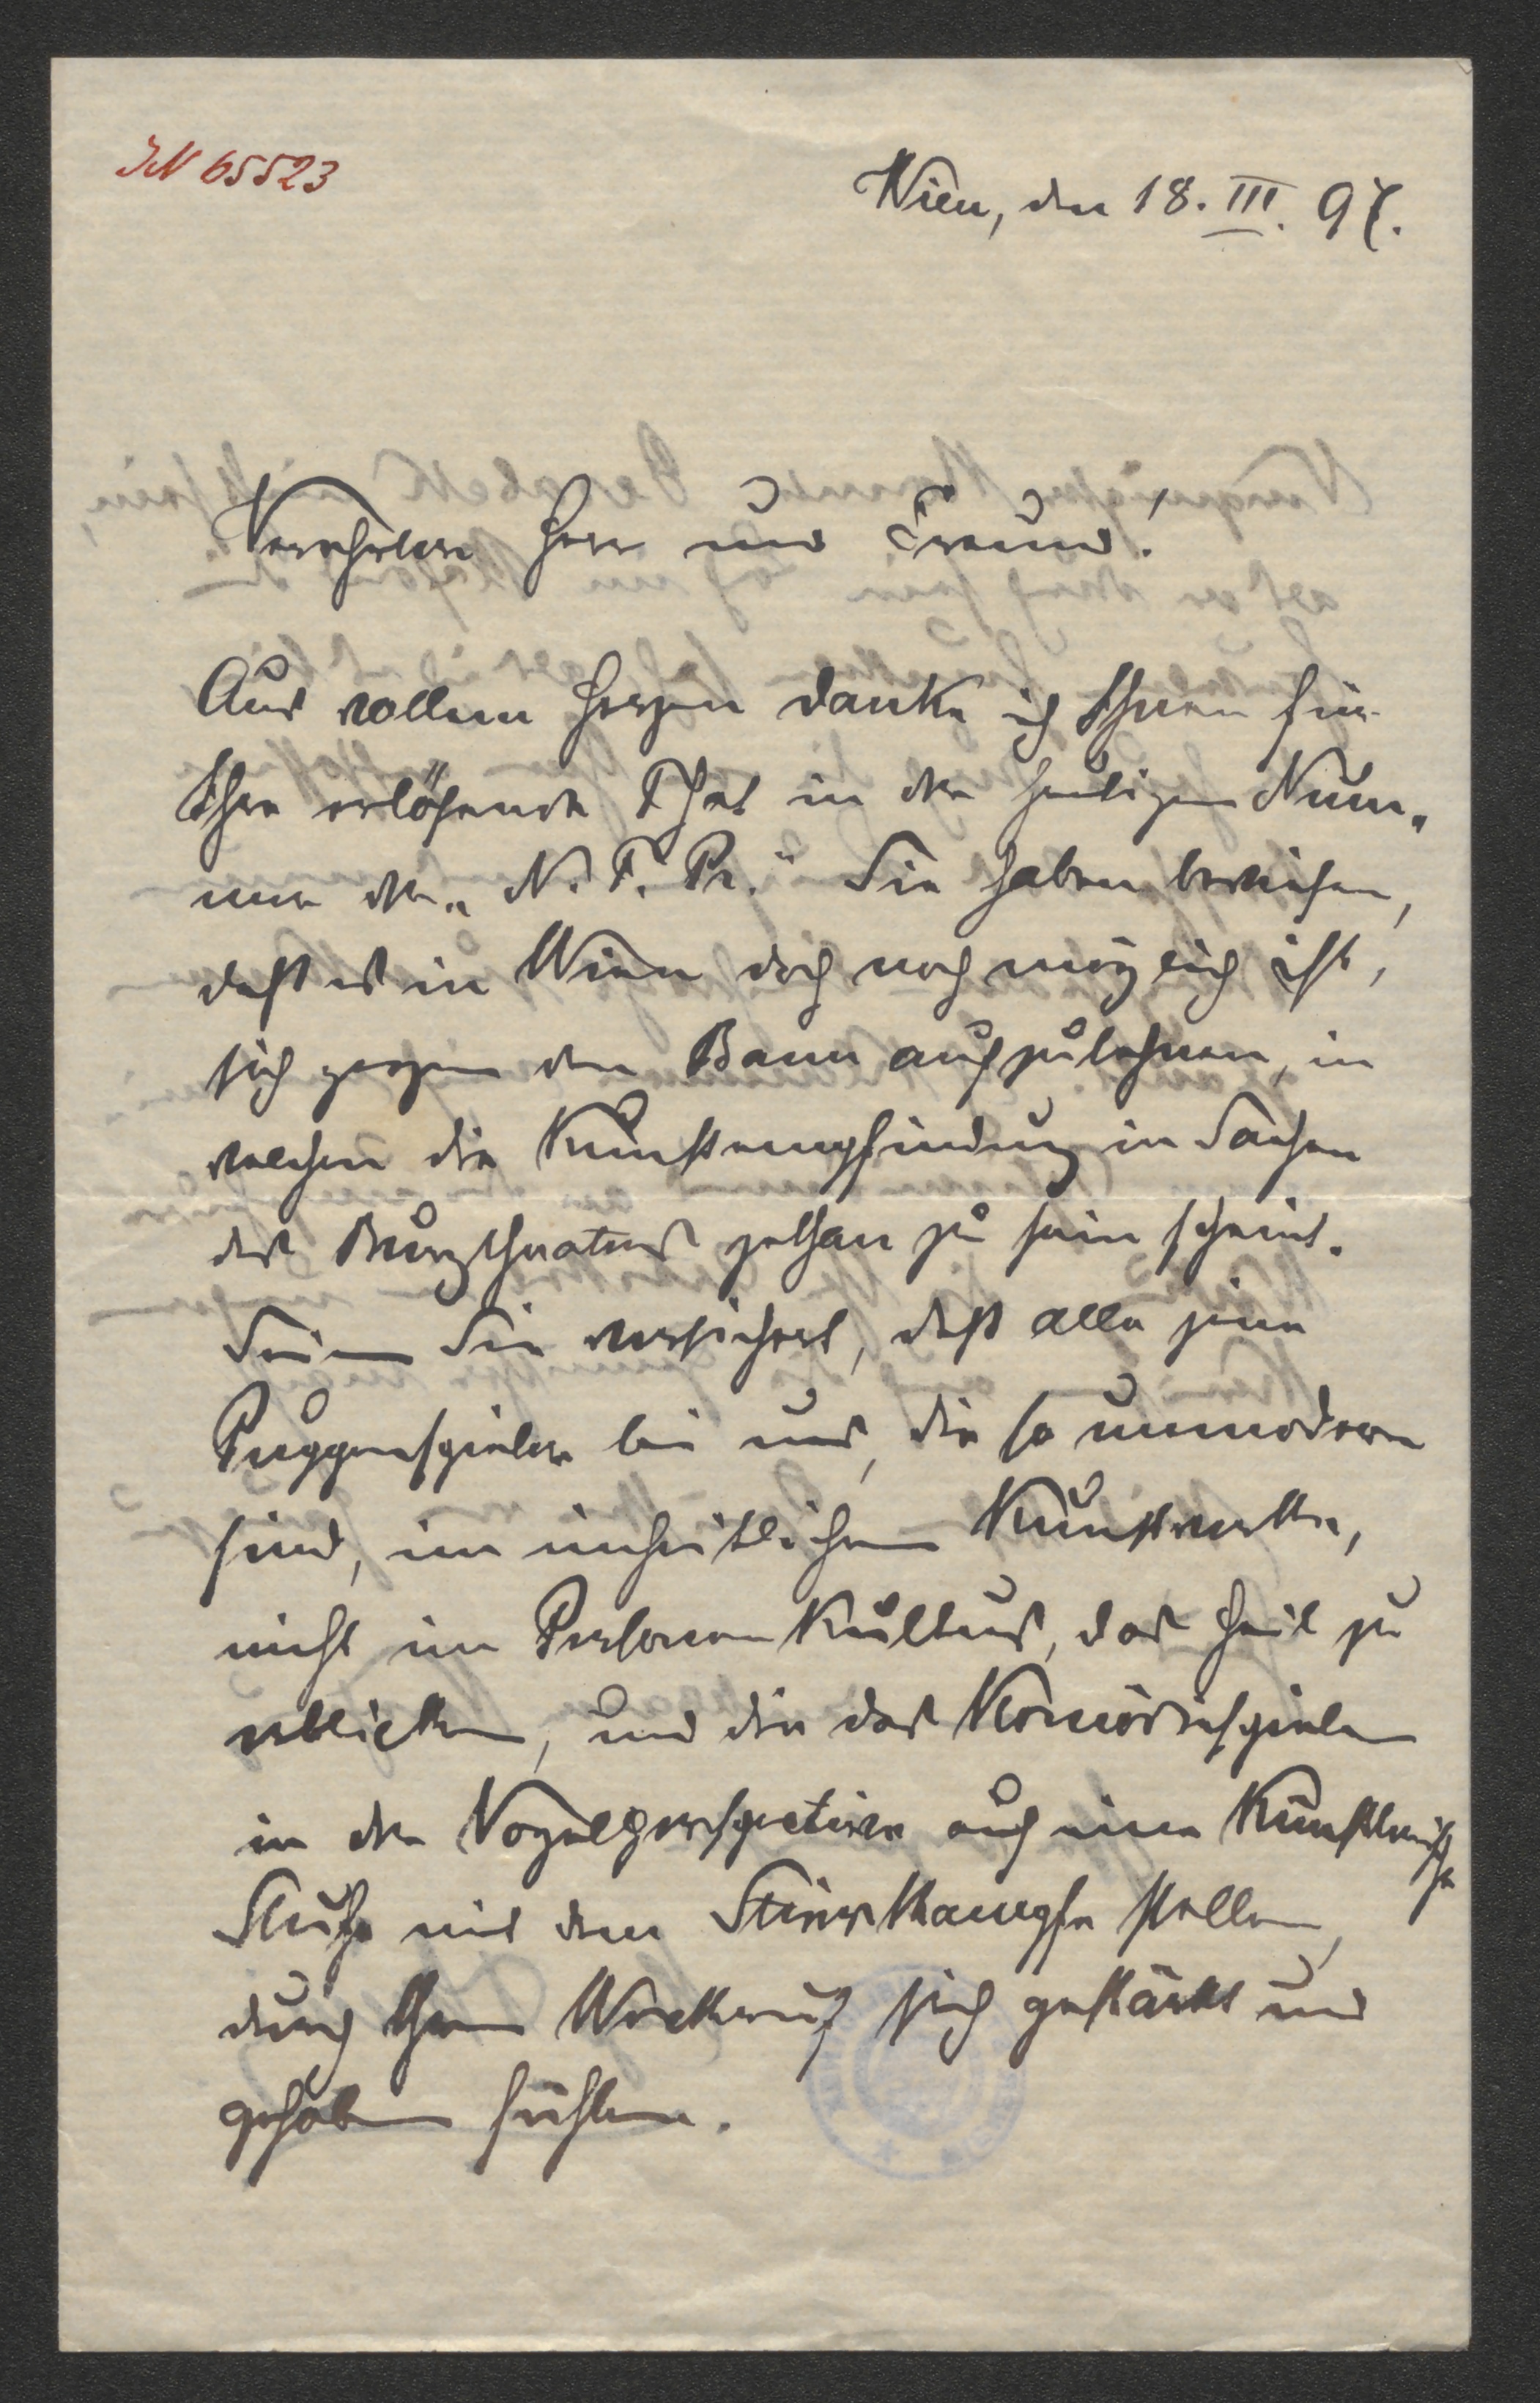 IN 65523
Wien, den 18. III. 97.
Verehrter Herr und Freund!
Aus vollem Herzen danke ich Ihnen für
Ihre erlösende That in der heutigen Num-
mer der „N. F. Pr.“ Sie haben bewiesen,
daß es in Wien doch noch möglich ist,
sich gegen den Bann aufzulehnen, in
welchen die Kunstempfindung in Sachen
des Burgtheaters gethan zu sein scheint.
Seien Sie versichert, daß alle jene
Puppenspieler bei uns, die so unmodern
sind, im einheitlichen Kunstwerke,
nicht im Personenkultus, das Heil zu
erblicken, und die das Komödiespielen
in der Vogelperspective auf eine künstlerische
Stufe mit dem Stierkampfe stellen,
durch Ihren Weckruf sich gestärkt und
gehoben fühlen.